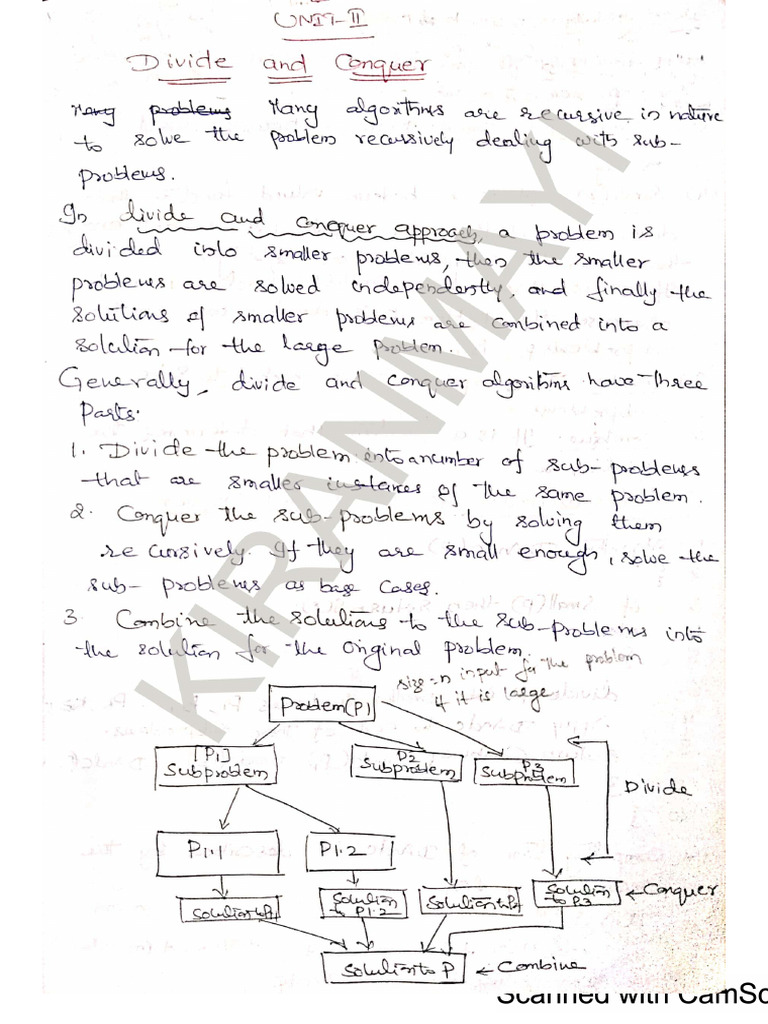 UNIT-II
Divide and Conquer
Many problems Many algorithms are recursive in nature
to solve the problem recursively dealing with sub-
problems.
In divide and conquer approach, a problem is
divided into smaller problems, then the smaller
problems are solved independently, and finally the
solutions of smaller problems are combined into a
solution for the large problem.
Generally, divide and conquer algorithms have three
parts.
1. Divide the problem into a number of sub-problems
that are smaller instances of the same problem.
2. Conquer the sub-problems by solving them
recursively. If they are small enough, solve the
sub-problems as base cases.
3. Combine the solutions to the sub-problems into
the solution for the original problem.
size = n input for the problem
if it is large
Problem(P)
[P1]
Subproblem
P2
Subproblem
P3
Subproblem
Divide
P1.1
P1.2
Solution to P1
Solution
to P1.2
Solution to P2
Solution
to P3
← Conquer
Solution to P
← Combine
KIRANMAYI
Scanned with CamSc